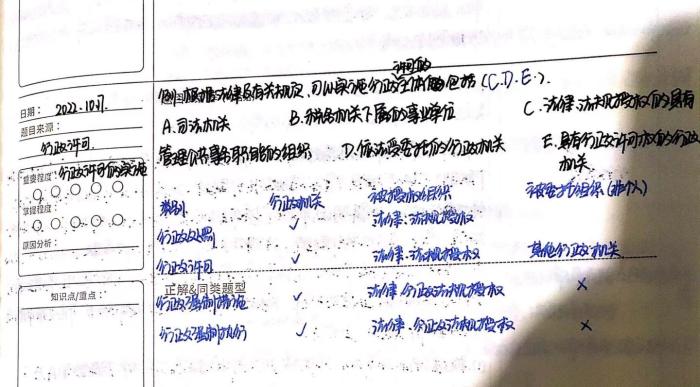 许可的
例:根据法律及有关规定,可以实施行政主体的包括(C.D.E.).
日期:2022.10.17.
A.司法机关 B.税务机关下属的事业单位 C.法律、法规授权的具有
题目来源:
行政许可.
管理公共事务职能的组织 D.依法受委托的行政机关 E.具有行政许可权的行政机关
行政许可的实施
重要程度:
类别 行政机关 被授权组织 被委托组织(非个人)
掌握程度:
行政处罚 ✓ 法律、法规授权
原因分析:
行政许可 ✓ 法律、法规授权 其他行政机关
知识点/重点:
正解&同类题型
行政强制措施 ✓ 法律、行政法规授权 ×
行政强制执行 ✓ 法律、行政法规授权 ×